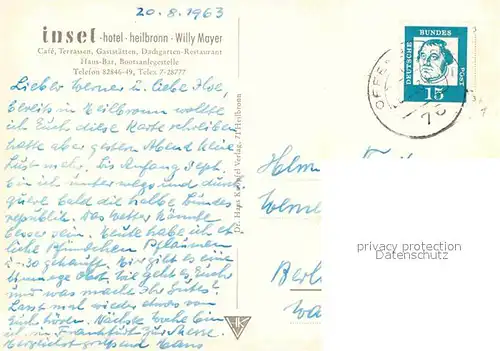 20.8.1963
insel -hotel - heilbronn - Willy Mayer
Café, Terrassen, Gaststätten, Dachgarten-Restaurant
Haus-Bar, Bootsanlegestelle
Telefon 82846-49, Telex 7-28777
Lieber Werner u. liebe Ilse,
bereits in Heilbronn wollte
ich Euch diese Karte schreiben
hatte aber gestern Abend keine
Lust mehr. Bis Anfang Sept.
bin ich unterwegs und durch
quere bald die halbe Bundes
republik. Das Wetter könnte
besser sein. Heute habe ich et
liche Pfündchen Pflaumen
-.30 gekauft. Hier gibt es eine
Obst. Wie geht es Euch
und was macht Ihr Gutes?
Lasst mal wieder etwas von
Euch hören. Nächste Woche bin
ich in Frankfurt zur Messe.
Herzlichst grüßend Hans
Verlag, 71 Heilbronn
HK
DEUTSCHE BUNDES POST
15
OFFEN
Werner
Berlin
privacy protection
Datenschutz